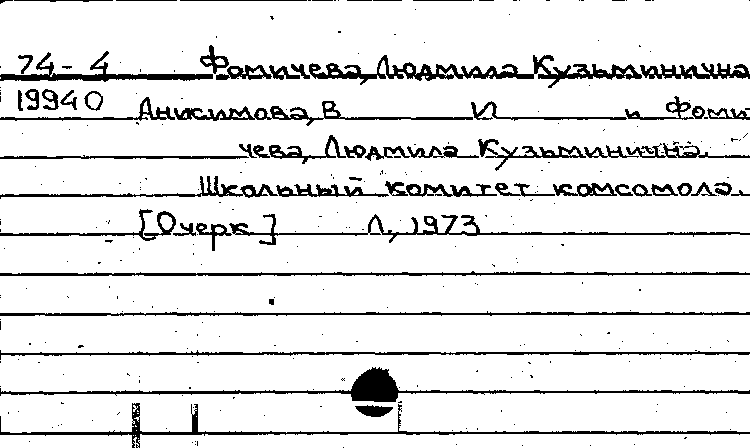 74-4 Фомичева, Людмила Кузьминична
19940 Анисимова, В И и Фоми
чева, Людмила Кузьминична.
Школьный комитет комсомола.
[Очерк] Л., 1973